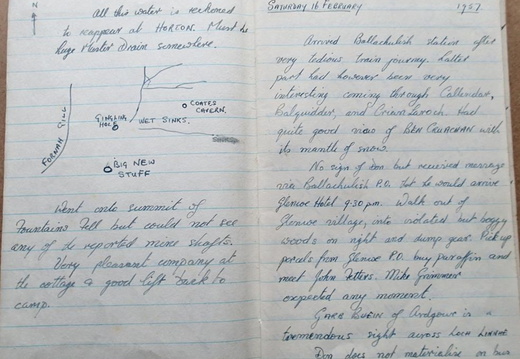 N
All this water is reckoned
to reappear at HORTON. Must be
huge Master Drain somewhere.
COATES
CAVERN.
GINGLING
HOLE
WET SINKS.
FORNAH GILL
BIG NEW
STUFF
Went onto summit of
Fountains Fell but could not see
any of de reported mine shafts.
Very pleasant company at
the cottage & good lift back to
camp.
SATURDAY 16 FEBRUARY 1957
Arrived Ballachulish station after
very tedious train journey. Latter
part had however been very
interesting coming through Callendar,
Balquidder, and Crianlaroch. Had
quite good view of BEN CRUACHAN with
its mantle of snow.
No sign of Don but received message
via Ballachulish P.O. that he would arrive
Glencoe Hotel 9.30 pm. Walk out of
Glencoe village, into isolated but boggy
woods on right and dump gear. Pick up
parcels from Glencoe P.O. buy paraffin and
meet John Petters. Mike Grimmer
expected any moment.
GARB BHEIN of Ardgour is a
tremendous sight across LOCH LINNHE
Don does not materialise on bus